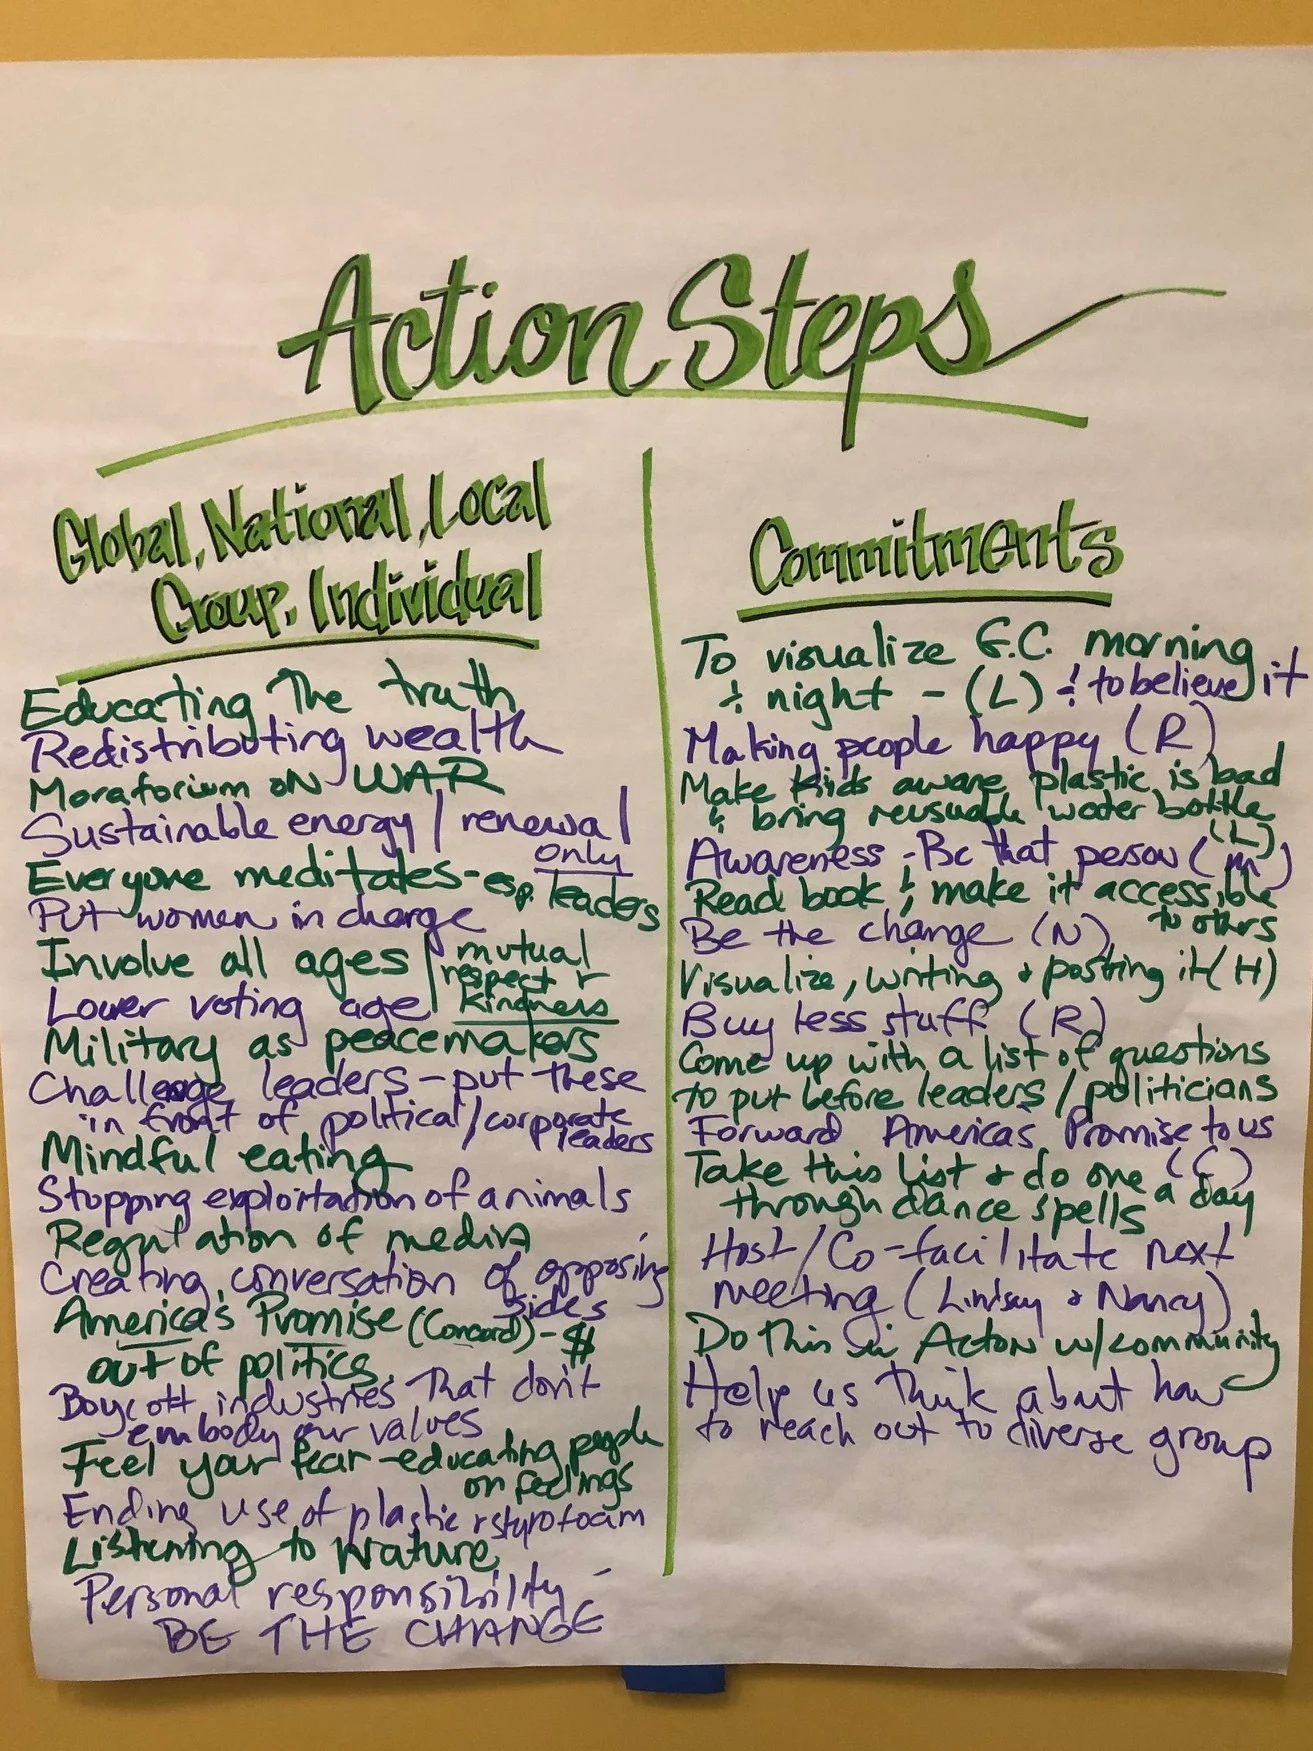 Action Steps
Global, National, Local
Group, Individual
Educating The truth
Redistributing wealth
Moratorium on WAR
Sustainable energy / renewal
only
Everyone meditates - esp. leaders
Put women in charge
Involve all ages / mutual
respect +
kindness
Lower voting age
Military as peacemakers
Challenge leaders - put these
in front of political / corporate
leaders
Mindful eating
Stopping exploitation of animals
Regulation of media
Creating conversation of opposing
sides
America's Promise (Concord) - $
out of politics.
Boycott industries That don't
embody our values
Feel your fear - educating people
on feelings
Ending use of plastic + styrofoam
Listening to Nature
Personal responsibility -
BE THE CHANGE
Commitments
To visualize G.C. morning
& night - (L) & to believe it
Making people happy (R)
Make kids aware plastic is bad
& bring reusuable water bottle
(L)
Awareness - Be that person (M)
Read book & make it accessible
to others
Be the change (N)
Visualize, writing + posting it (H)
Buy less stuff (R)
Come up with a list of questions
to put before leaders / politicians
Forward Americas Promise to us
(C)
Take this list + do one a day
through dance spells
Host / Co-facilitate next
meeting (Lindsay + Nancy)
Do This in Acton w/community
Help us Think about how
to reach out to diverse group